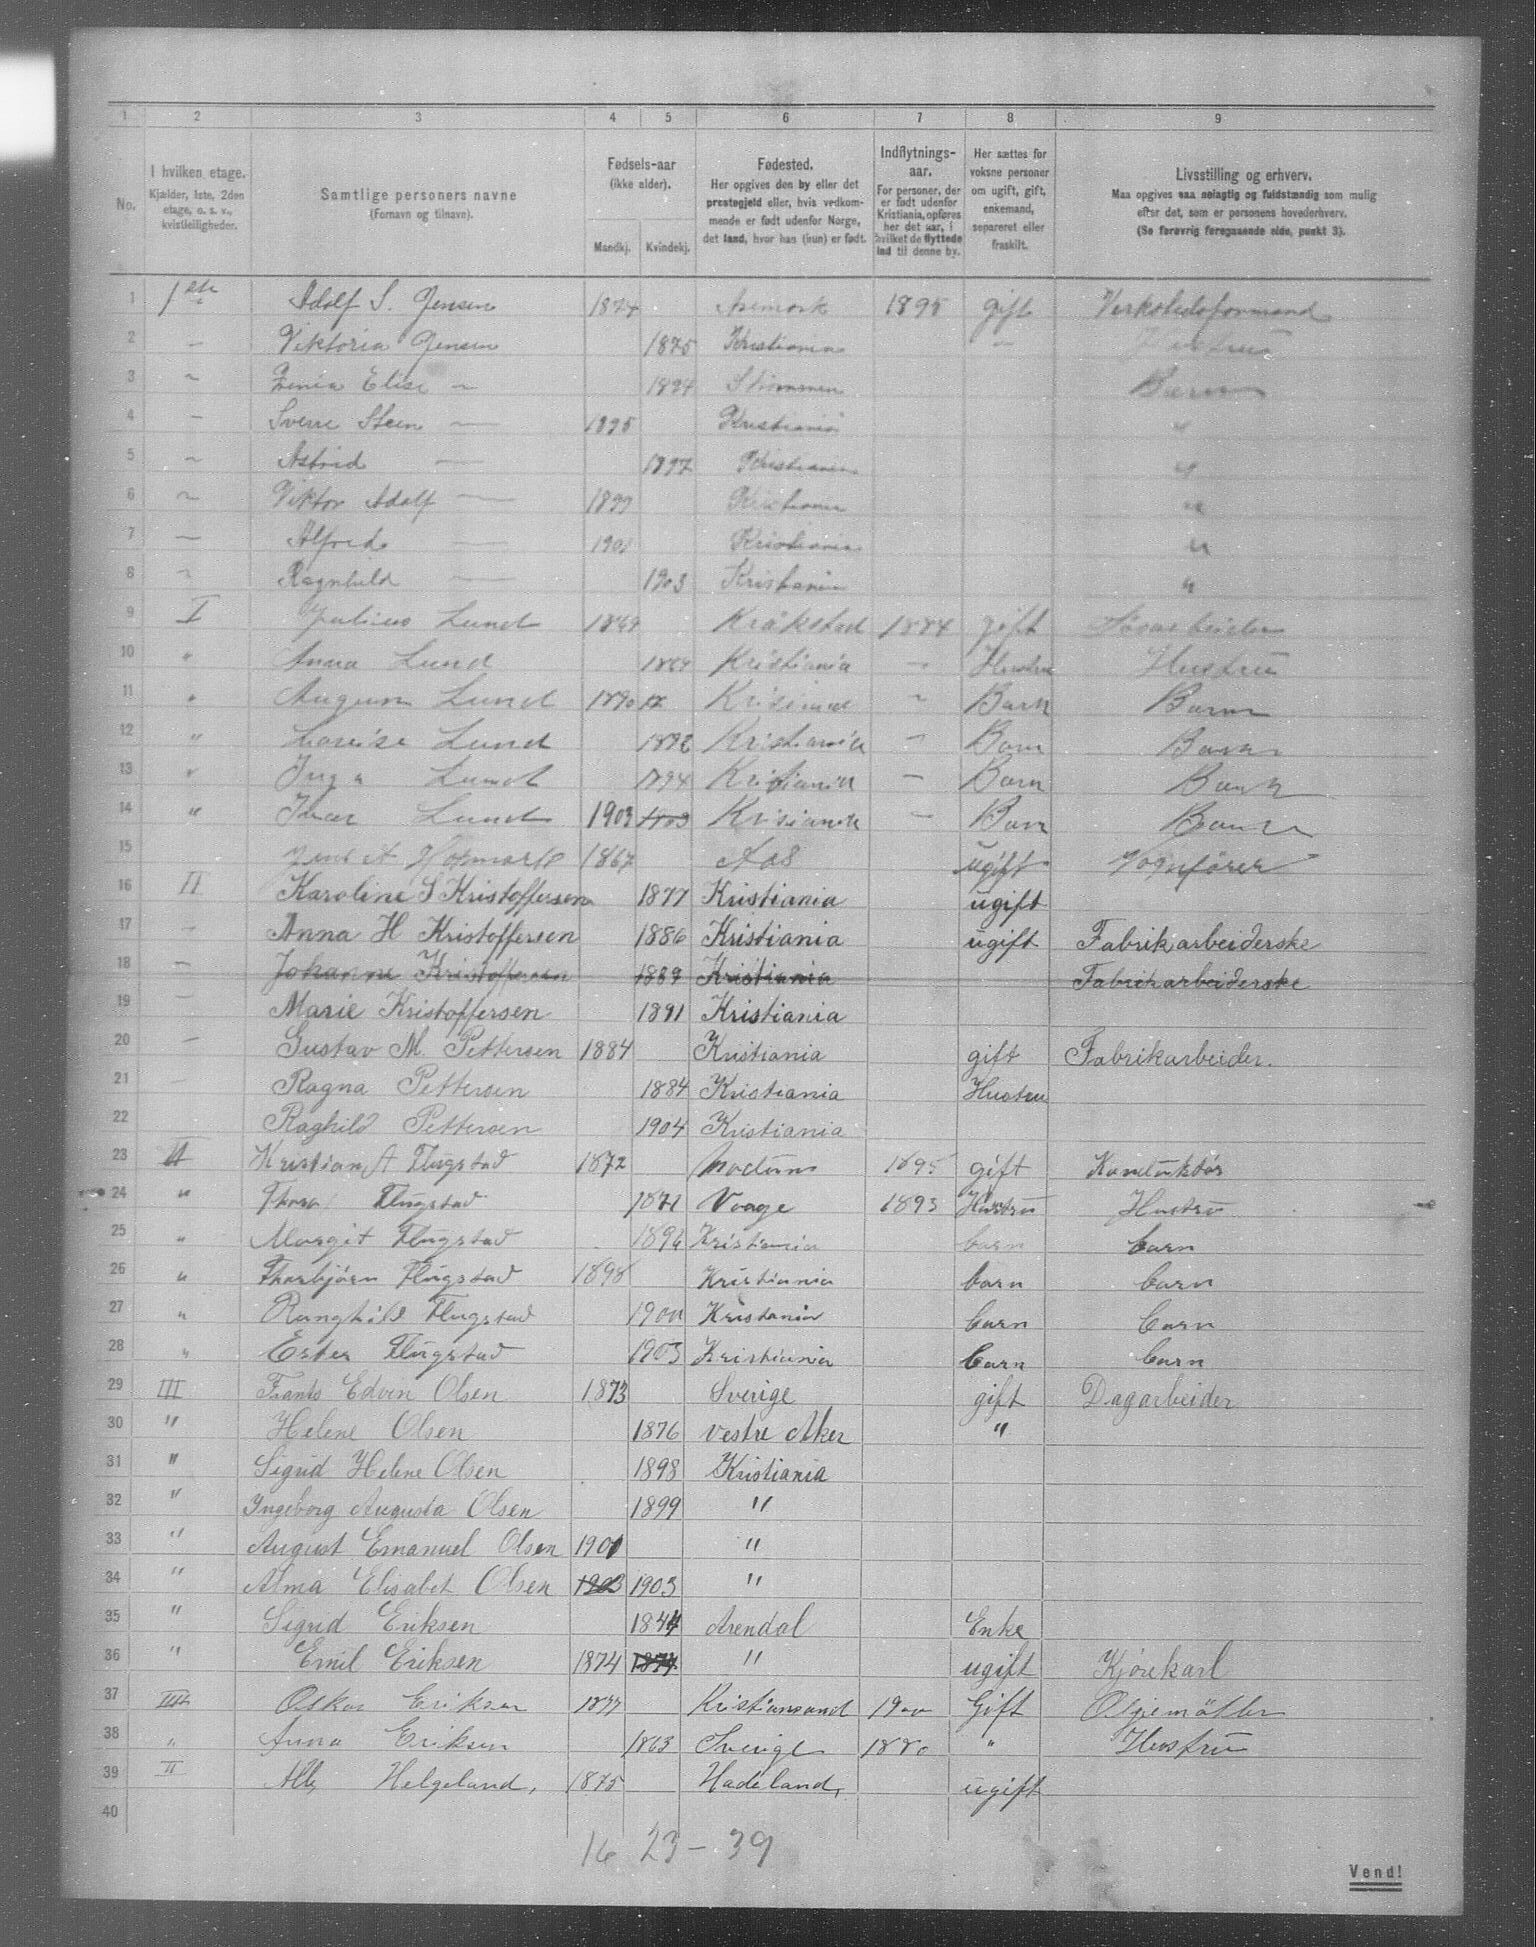 1 2 3 4 5 6 7 8 9
No.
I hvilken etage.
Kjælder, 1ste, 2den
etage, o. s. v.,
kvistleiligheder.
Samtlige personers navne
(Fornavn og tilnavn).
Fødsels-aar
(ikke alder).
Mandkj. Kvindekj.
Fødested.
Her opgives den by eller det
prestegjeld eller, hvis vedkom-
mende er født udenfor Norge,
det land, hvor han (hun) er født.
Indflytnings-
aar.
For personer, der
er født udenfor
Kristiania, opføres
her det aar, i
hvilket de flyttede
ind til denne by.
Her sættes for
voksne personer
om ugift, gift,
enkemand,
separeret eller
fraskilt.
Livsstilling og erhverv.
Maa opgives saa nøiagtig og fuldstændig som mulig
efter det, som er personens hovederhverv.
(Se forøvrig foregaaende side, punkt 3).
1 1ste Adolf S. Jensen 1874 Aremark 1895 gift Verkstedsformand
2 — Viktoria Jensen 1875 Kristiania — Hustru
3 ~ Elise ~ 1894 Strømmen Barn
4 — Sverre Steen — 1895 Kristiania "
5 ~ Astrid — 1897 Kristiania "
6 ~ Viktor Adolf — 1899 Kristiania "
7 — Alfred — 1901 Kristiania "
8 ~ Ragnhild — 1903 Kristiania "
9 I Julius Lund 1869 Kråkstad 1884 gift
10 " Anna Lund 1869 Kristiania — Hustru Hustru
11 " Lund 1890 Barn Barn
12 " Lovise Lund 1892 Kristiania — Barn Barn
13 " Inga Lund 1894 Kristiania — Barn Barn
14 " Ivar Lund 1903 1903 Kristiania — Barn Barn
15 1867 Aas ugift Vognfører
16 II Karoline S Kristoffersen 1877 Kristiania ugift
17 — Anna H Kristoffersen 1886 Kristiania ugift Fabrikarbeiderske
18 — Johanne Kristoffersen 1889 Kristiania Fabrikarbeiderske
19 — Marie Kristoffersen 1891 Kristiania
20 — Gustav M. Pettersen 1884 Kristiania gift Fabrikarbeider.
21 — Ragna Pettersen 1884 Kristiania Hustru
22 Raghild Pettersen 1904 Kristiania
23 II Kristian A Flugstad 1872 1895 gift Konduktør
24 " Thora Flugstad 1871 Vaage 1893 Hustru Hustru
25 " Margit Flugstad 1896 Kristiania barn barn
26 " Thorbjørn Flugstad 1898 Kristiania barn barn
27 " Ranghild Flugstad 1900 Kristania barn barn
28 " Ester Flugstad 1903 Kristiania barn barn
29 III Frants Edvin Olsen 1873 Sverige gift Dagarbeider
30 " Helene Olsen 1876 vestre Aker "
31 " Sigrid Helene Olsen 1898 Kristiania
32 " Ingeborg Augusta Olsen 1899 "
33 " August Emanuel Olsen 1901 "
34 " Alma Elisabet Olsen 1903 1903 "
35 " Sigrid Eriksen 1844 Arendal Enke
36 " Emil Eriksen 1874 1874 " ugift Kjørekarl
37 III Oskar Eriksen 1877 Kristiansand 1900 Gift
38 " Anna Eriksen 1863 Sverige 1880 " Hustru
39 II Helgeland, 1875 Hadeland, ugift
40
16 23 – 39
Vend!